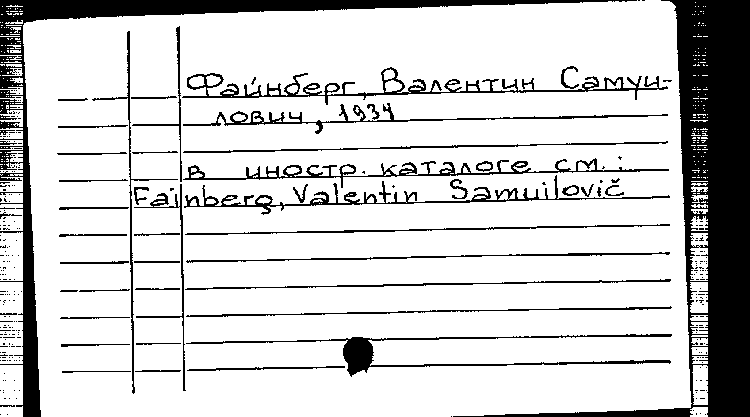 Файнберг, Валентин Самуи-
лович, 1934
в иностр. каталоге см.:
Fainberg, Valentin Samuilovič